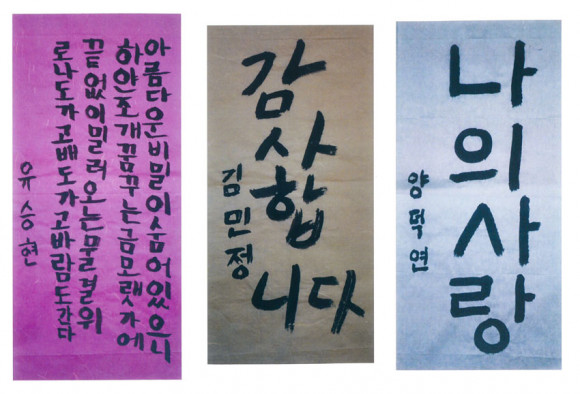 아름다운비밀이숨어있으니
하얀조개꿈꾸는금모랫가에
끝없이밀려오는물결위
로나도가고배도가고바람도간다
유승현
감사합니다
김민정
나의사랑
양덕연